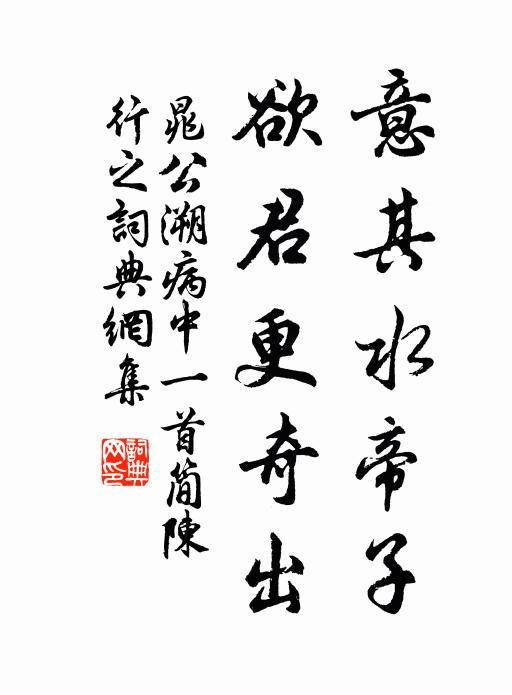 意其水帝子
欲君更奇出
晁公溯病中一首簡陳
行之詞典網集
詞典
网印